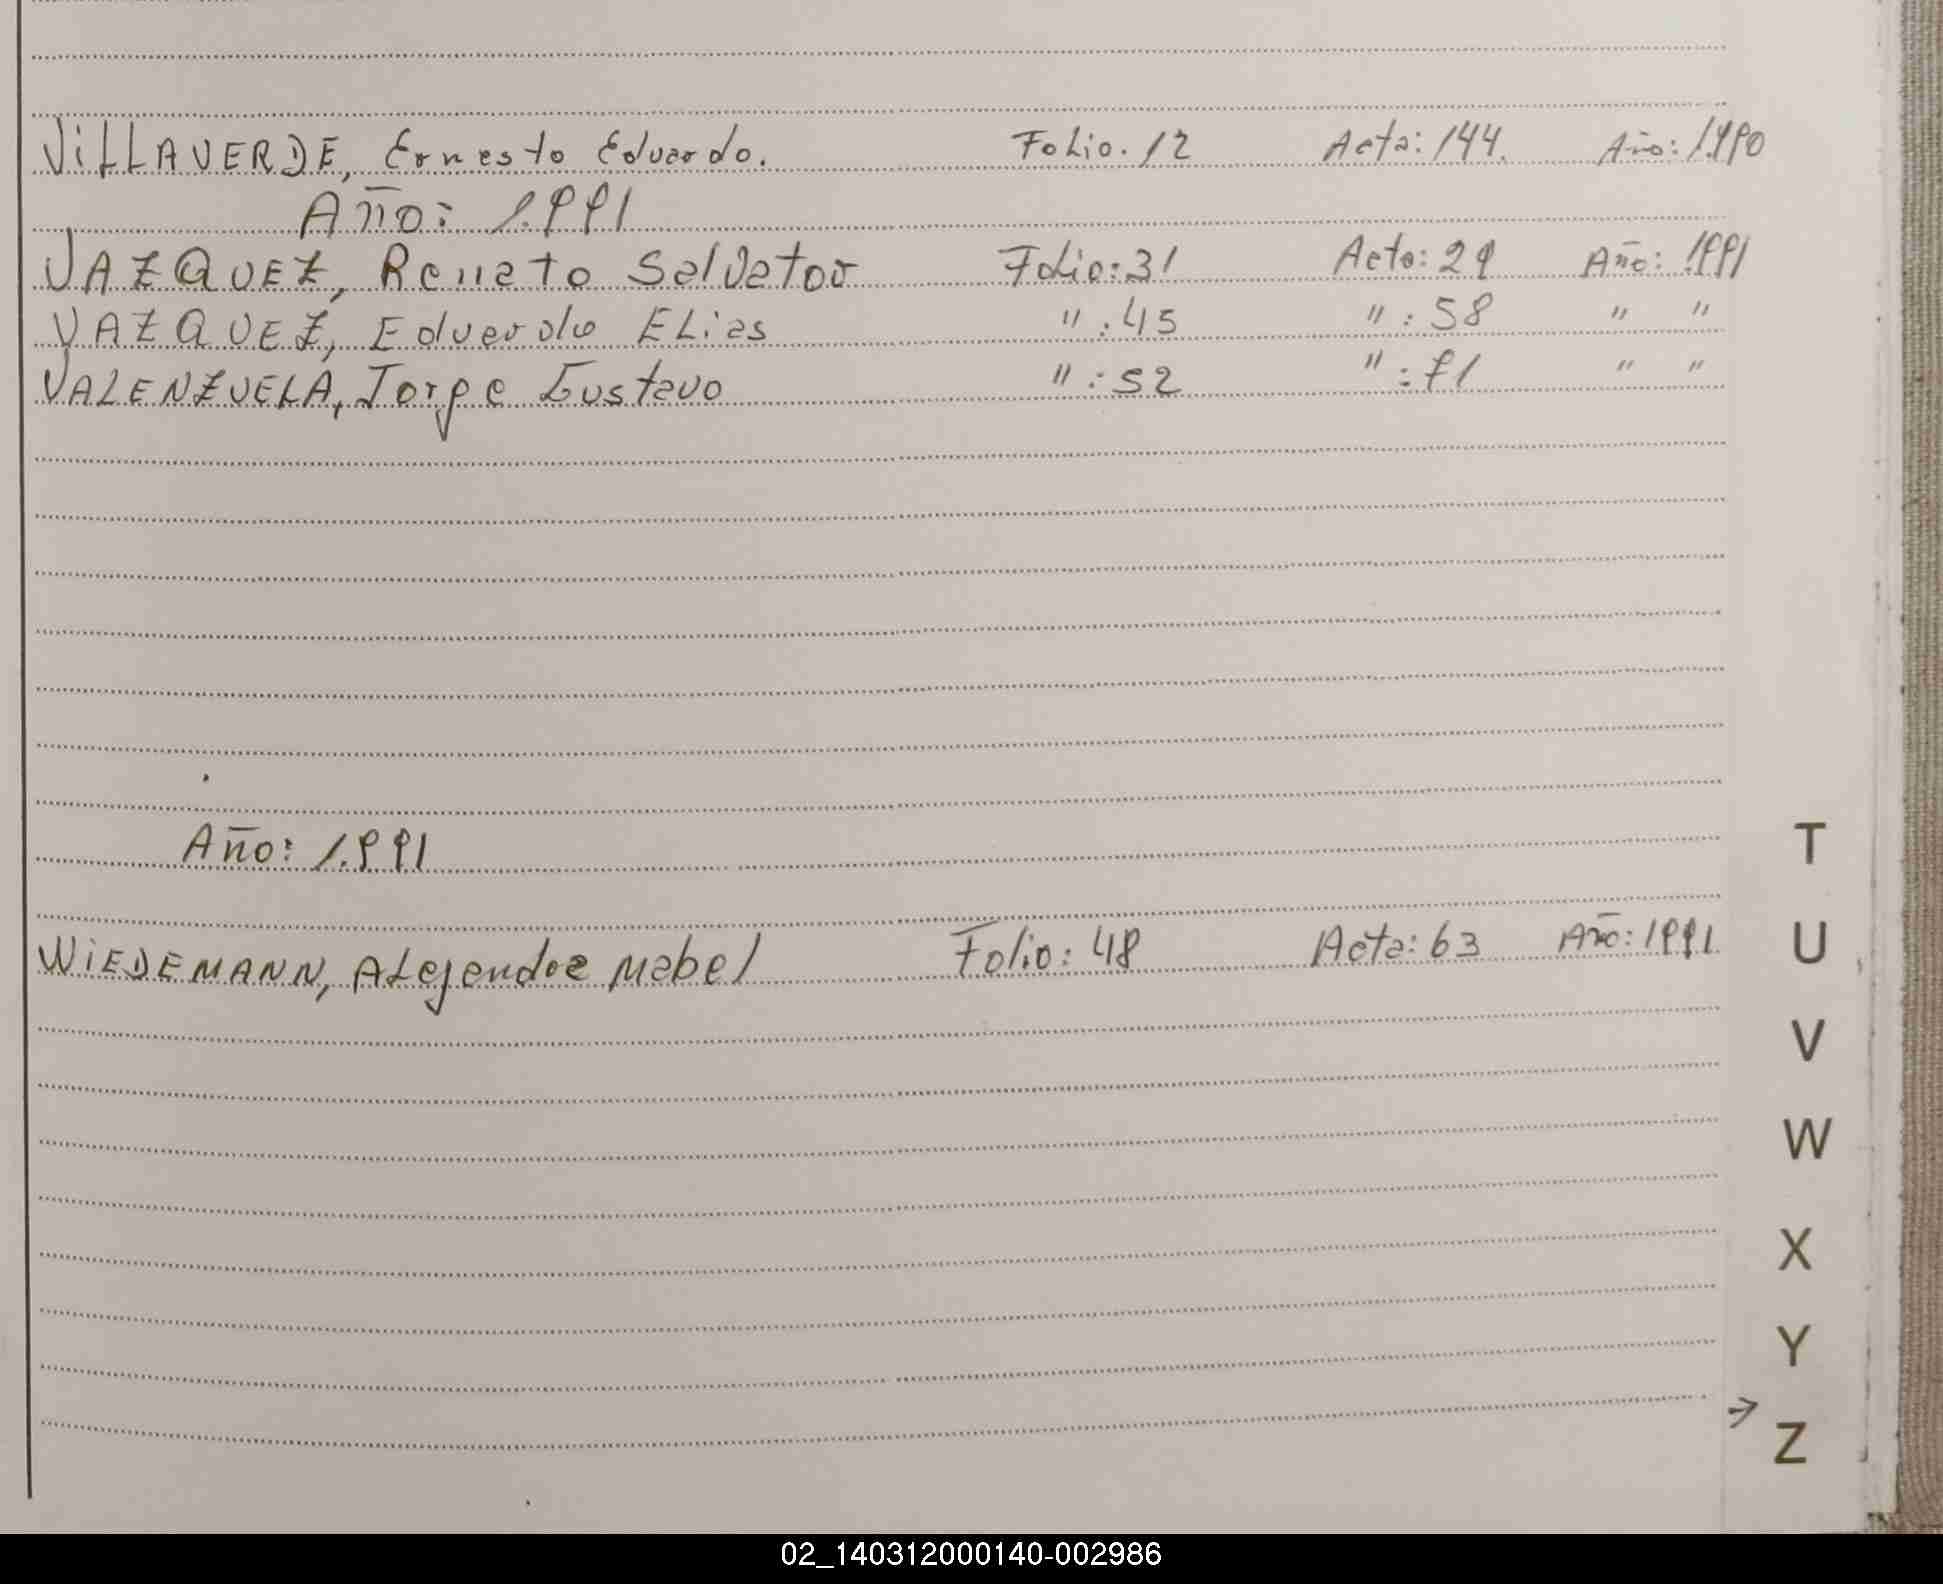 ViLLAVERDE, Ernesto Eduardo. Folio. 12 Acta: 144. Año: 1.990
Año: 1.991
VAZQUEZ, Renato Salvator Folio: 31 Acta: 29 Año: 1991
VAZQUEZ, Eduardo ELias " : 45 " : 58 " "
VALENZUELA, Jorge Gustavo " : 52 " : 71 " "
Año: 1.991
WiEDEMANN, ALejandra Mabel Folio: 48 Acta: 63 Año: 1991
T
U
V
W
X
Y
→ Z
02_140312000140-002986